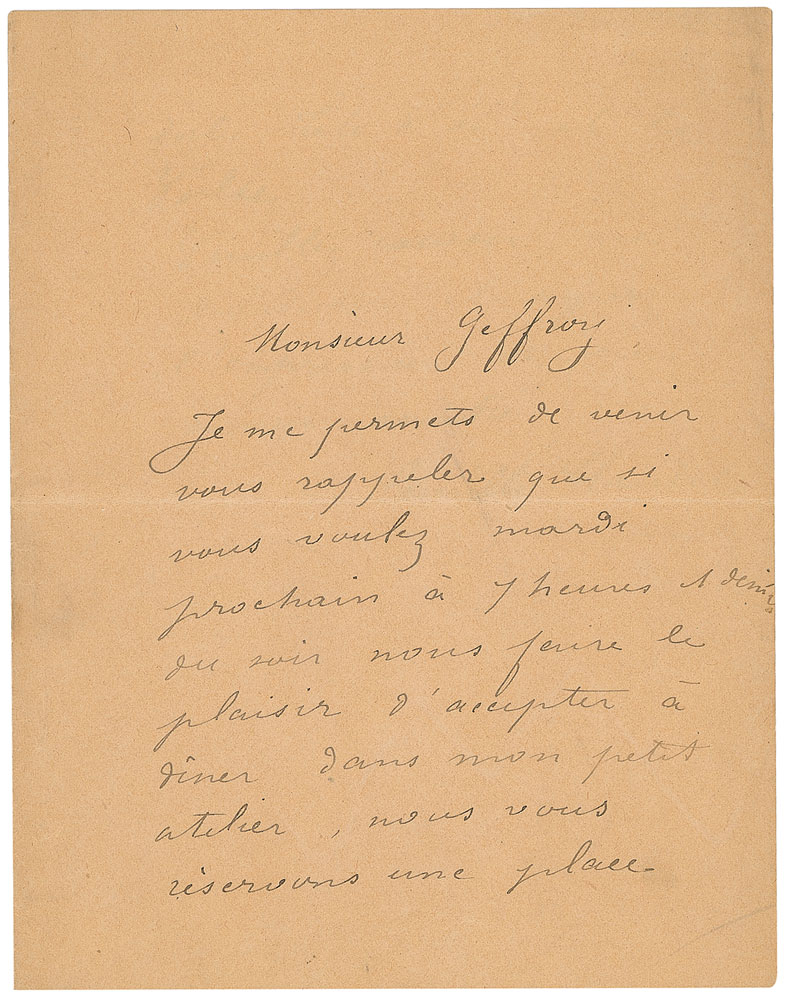 Monsieur Geffroy
Je me permets de venir
vous rappeler que si
vous voulez mardi
prochain à 7 heures et demie
du soir nous faire le
plaisir d'accepter à
dîner dans mon petit
atelier, nous vous
réservons une place